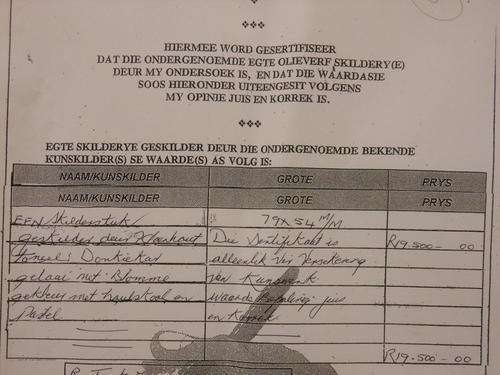 HIERMEE WORD GESERTIFISEER
DAT DIE ONDERGENOEMDE EGTE OLIEVERF SKILDERY(E)
DEUR MY ONDERSOEK IS, EN DAT DIE WAARDASIE
SOOS HIERONDER UITEENGESIT VOLGENS
MY OPINIE JUIS EN KORREK IS.
EGTE SKILDERYE GESKILDER DEUR DIE ONDERGENOEMDE BEKENDE
KUNSKILDER(S) SE WAARDE(S) AS VOLG IS:
NAAM/KUNSKILDER GROTE PRYS
NAAM/KUNSKILDER GROTE PRYS
EEN Skilderstuk 79 X 54 M/M
geskilder deur Die Sertifikaat is R19.500 - 00
Toneel: Donkiekar alleenlik vir Versekering
gelaai met Blomme van Kunswerk
geteken met houtskool en waarde bepaling juis
Pastel en Korrek
R19.500 - 00